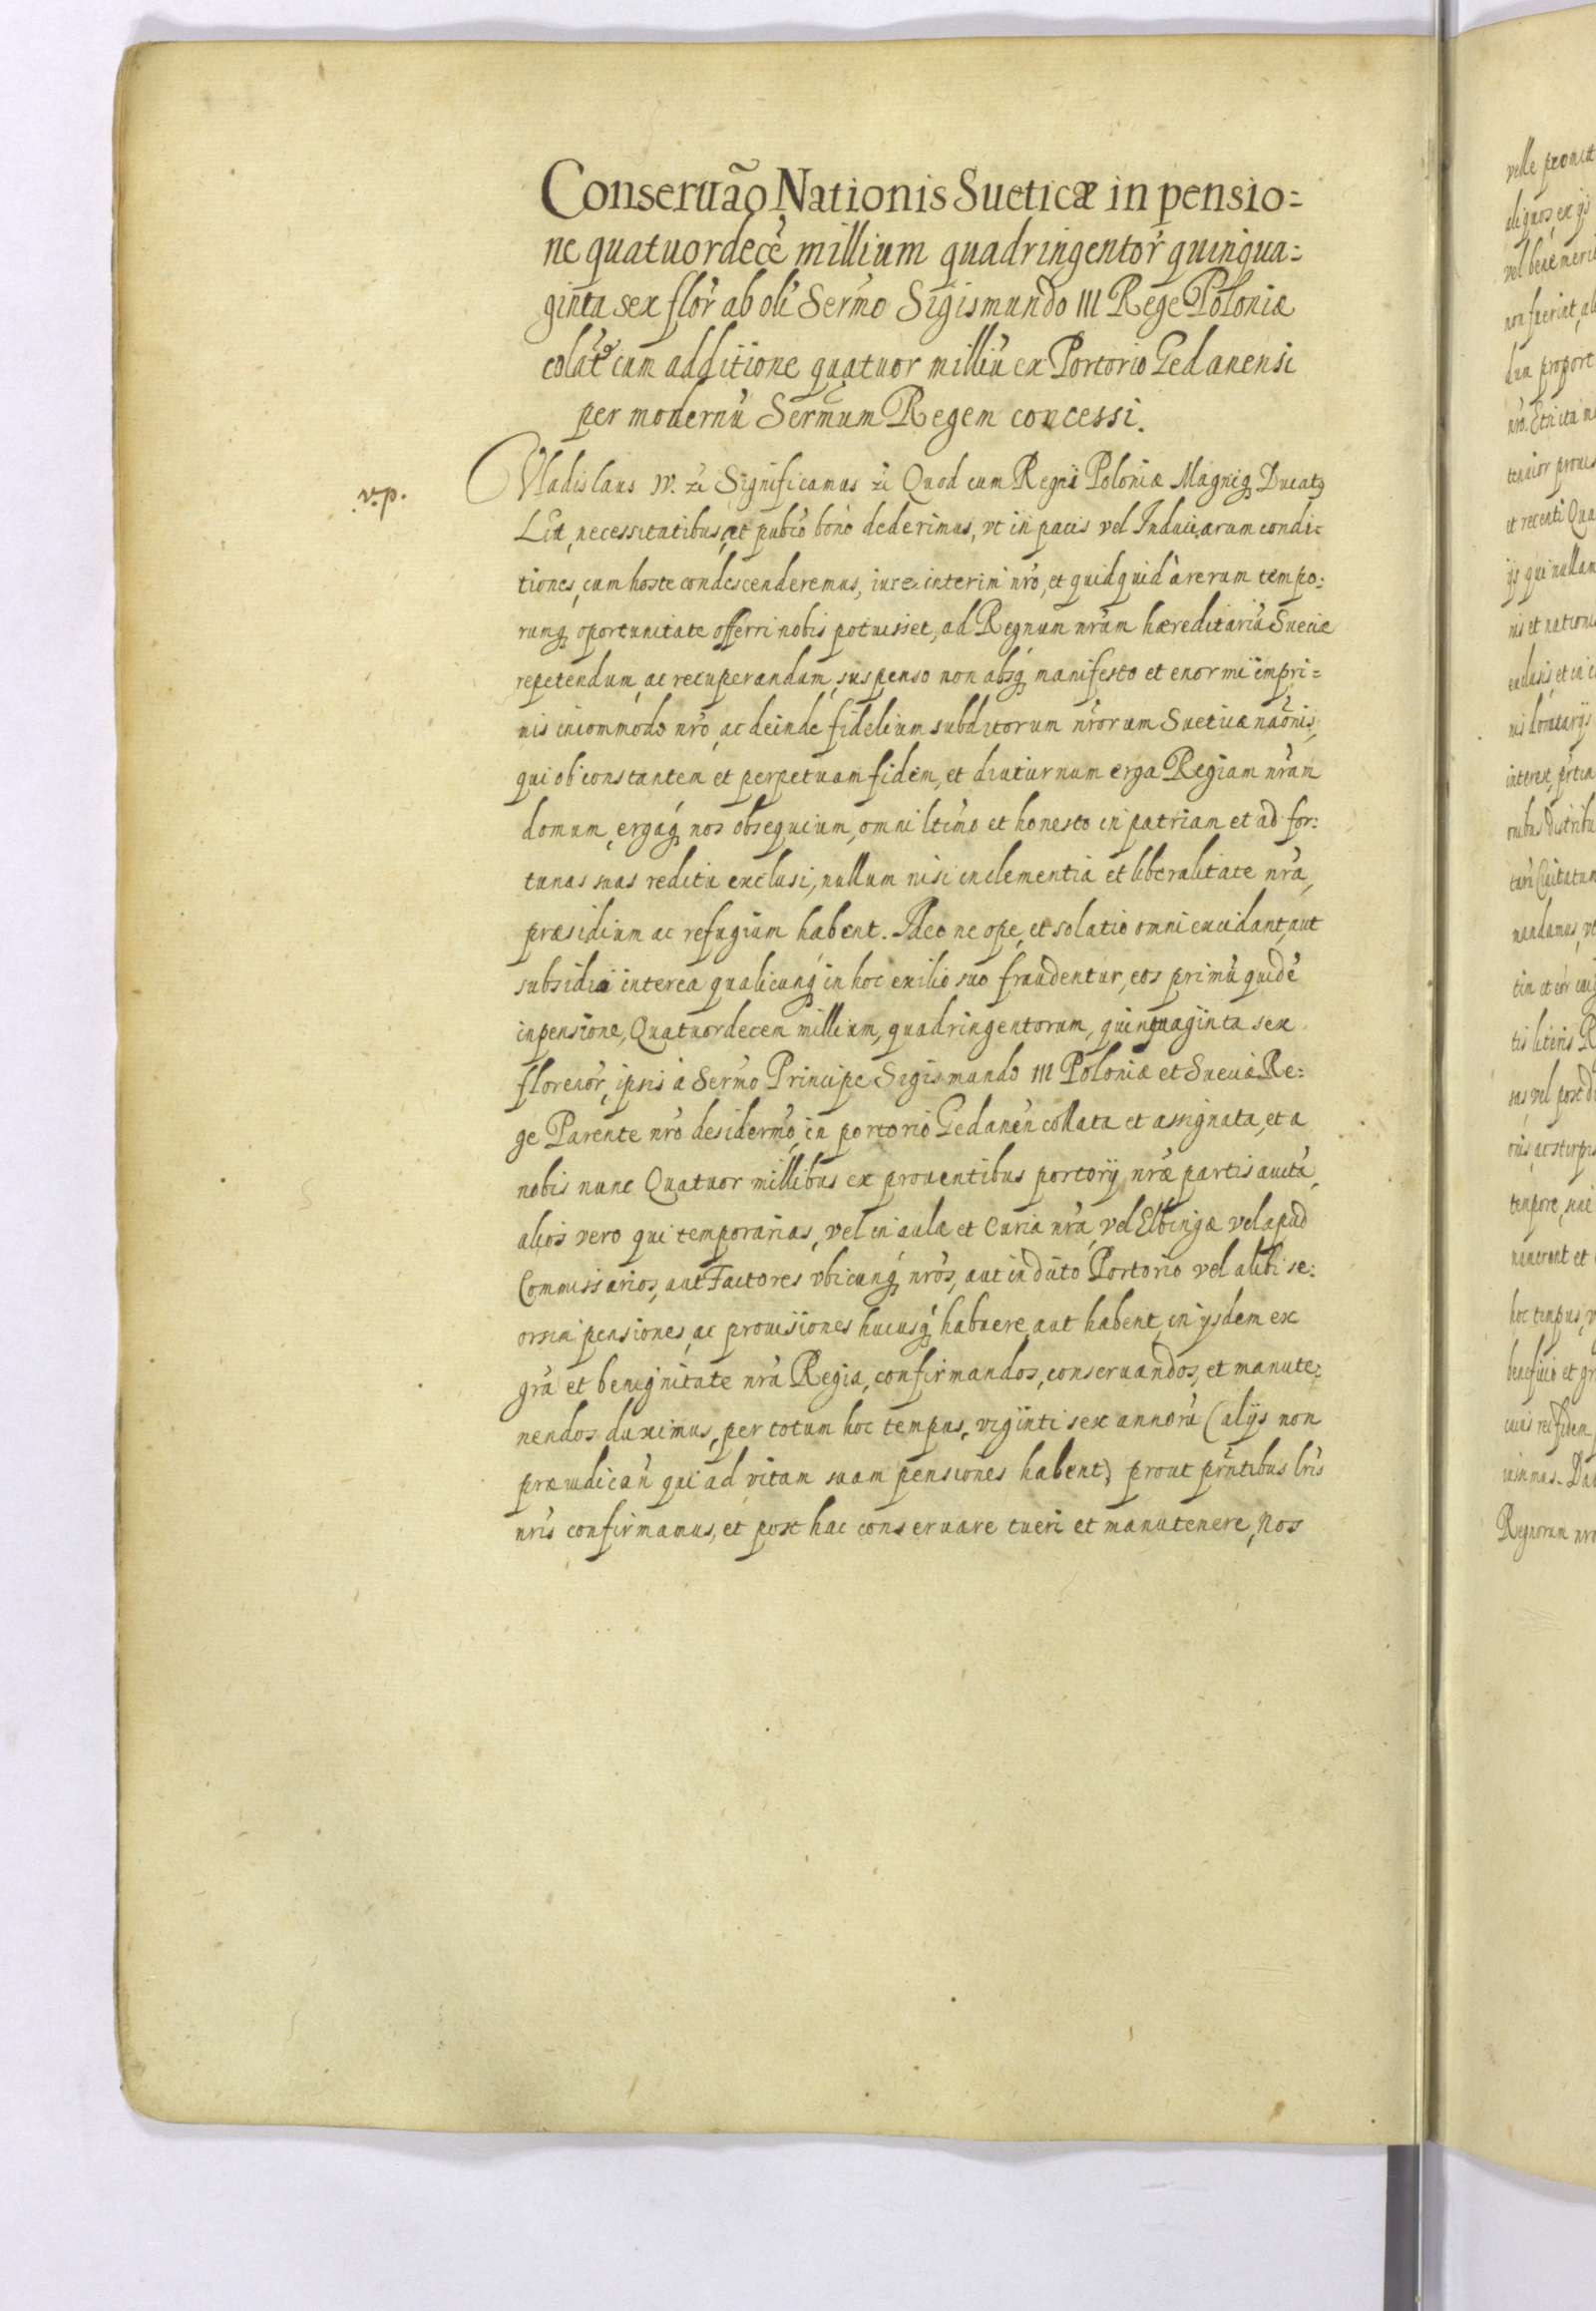 Conseruão Nationis Sueticæ in pensio=
ne quatuordecē millium quadringentor̃ quinqua=
ginta sex flor̃ ab oli Sermo Sigismundo III Rege Poloniæ
colat cum additione quatuor milliū ex Portorio Gedanensi
per modernū Sermum Regem concessi.
v.p.
Vladislaus IV. Significamus Quod cum Regni Poloniæ Magniq Ducatꝰ
Lit, necessitatibus, et pubco bono dederimus, vt in pacis vel Induciarum condi=
tiones, cum hoste condescenderemus, iure interim nrō, et quidquid à rerum tempo=
rumq oportunitate offerri nobis potuisset, ad Regnum nrūm hæreditariū Sueciæ
repetendum, ac recuperandum, suspenso non absq manifesto et enormi impri=
mis incommodo nrō, ac deinde fidelium subditorum nrōrum Sueticæ naōnis,
qui ob constantem et perpetuam fidem, et diuturnum erga Regiam nrām
domum, ergaq nos obsequium, omni ltimo et honesto in patriam et ad for=
tunas suas reditu exclusi, nullum nisi in clementia et liberalitate nrā,
præsidium ac refugium habent. Adeo ne ope, et solatio omni excidant, aut
subsidio interea qualicunq in hoc exilio suo fraudentur, eos primū quidē
in pensione, Quatuordecem millium, quadringentorum, quinquaginta sex
florenor̃, ipsis à Sermo Principe Sigismundo III Poloniæ et Sueciæ Re=
ge Parente nrō desidermo, in portorio Gedanen collata et assignata, et a
nobis nunc Quatuor millibus ex prouentibus portorij nræ partis auctā,
alios vero qui temporarias, vel in aula et Curia nrā, vel Elbingæ vel apud
Commissarios, aut Factores vbicunq nrōs, aut in dicto Portorio vel alibi se=
orsim pensiones, ac prouisiones hucusq habuere aut habent, in ijsdem ex
grā et benignitate nrā Regia, confirmandos, conseruandos, et manute=
nendos duximus, per totum hoc tempus, viginti sex annorū (alijs non
præiudicañ qui ad vitam suam pensiones habent) prout prñtibus lrīs
nrīs confirmamus, et post hac conseruare tueri et manutenere, nos